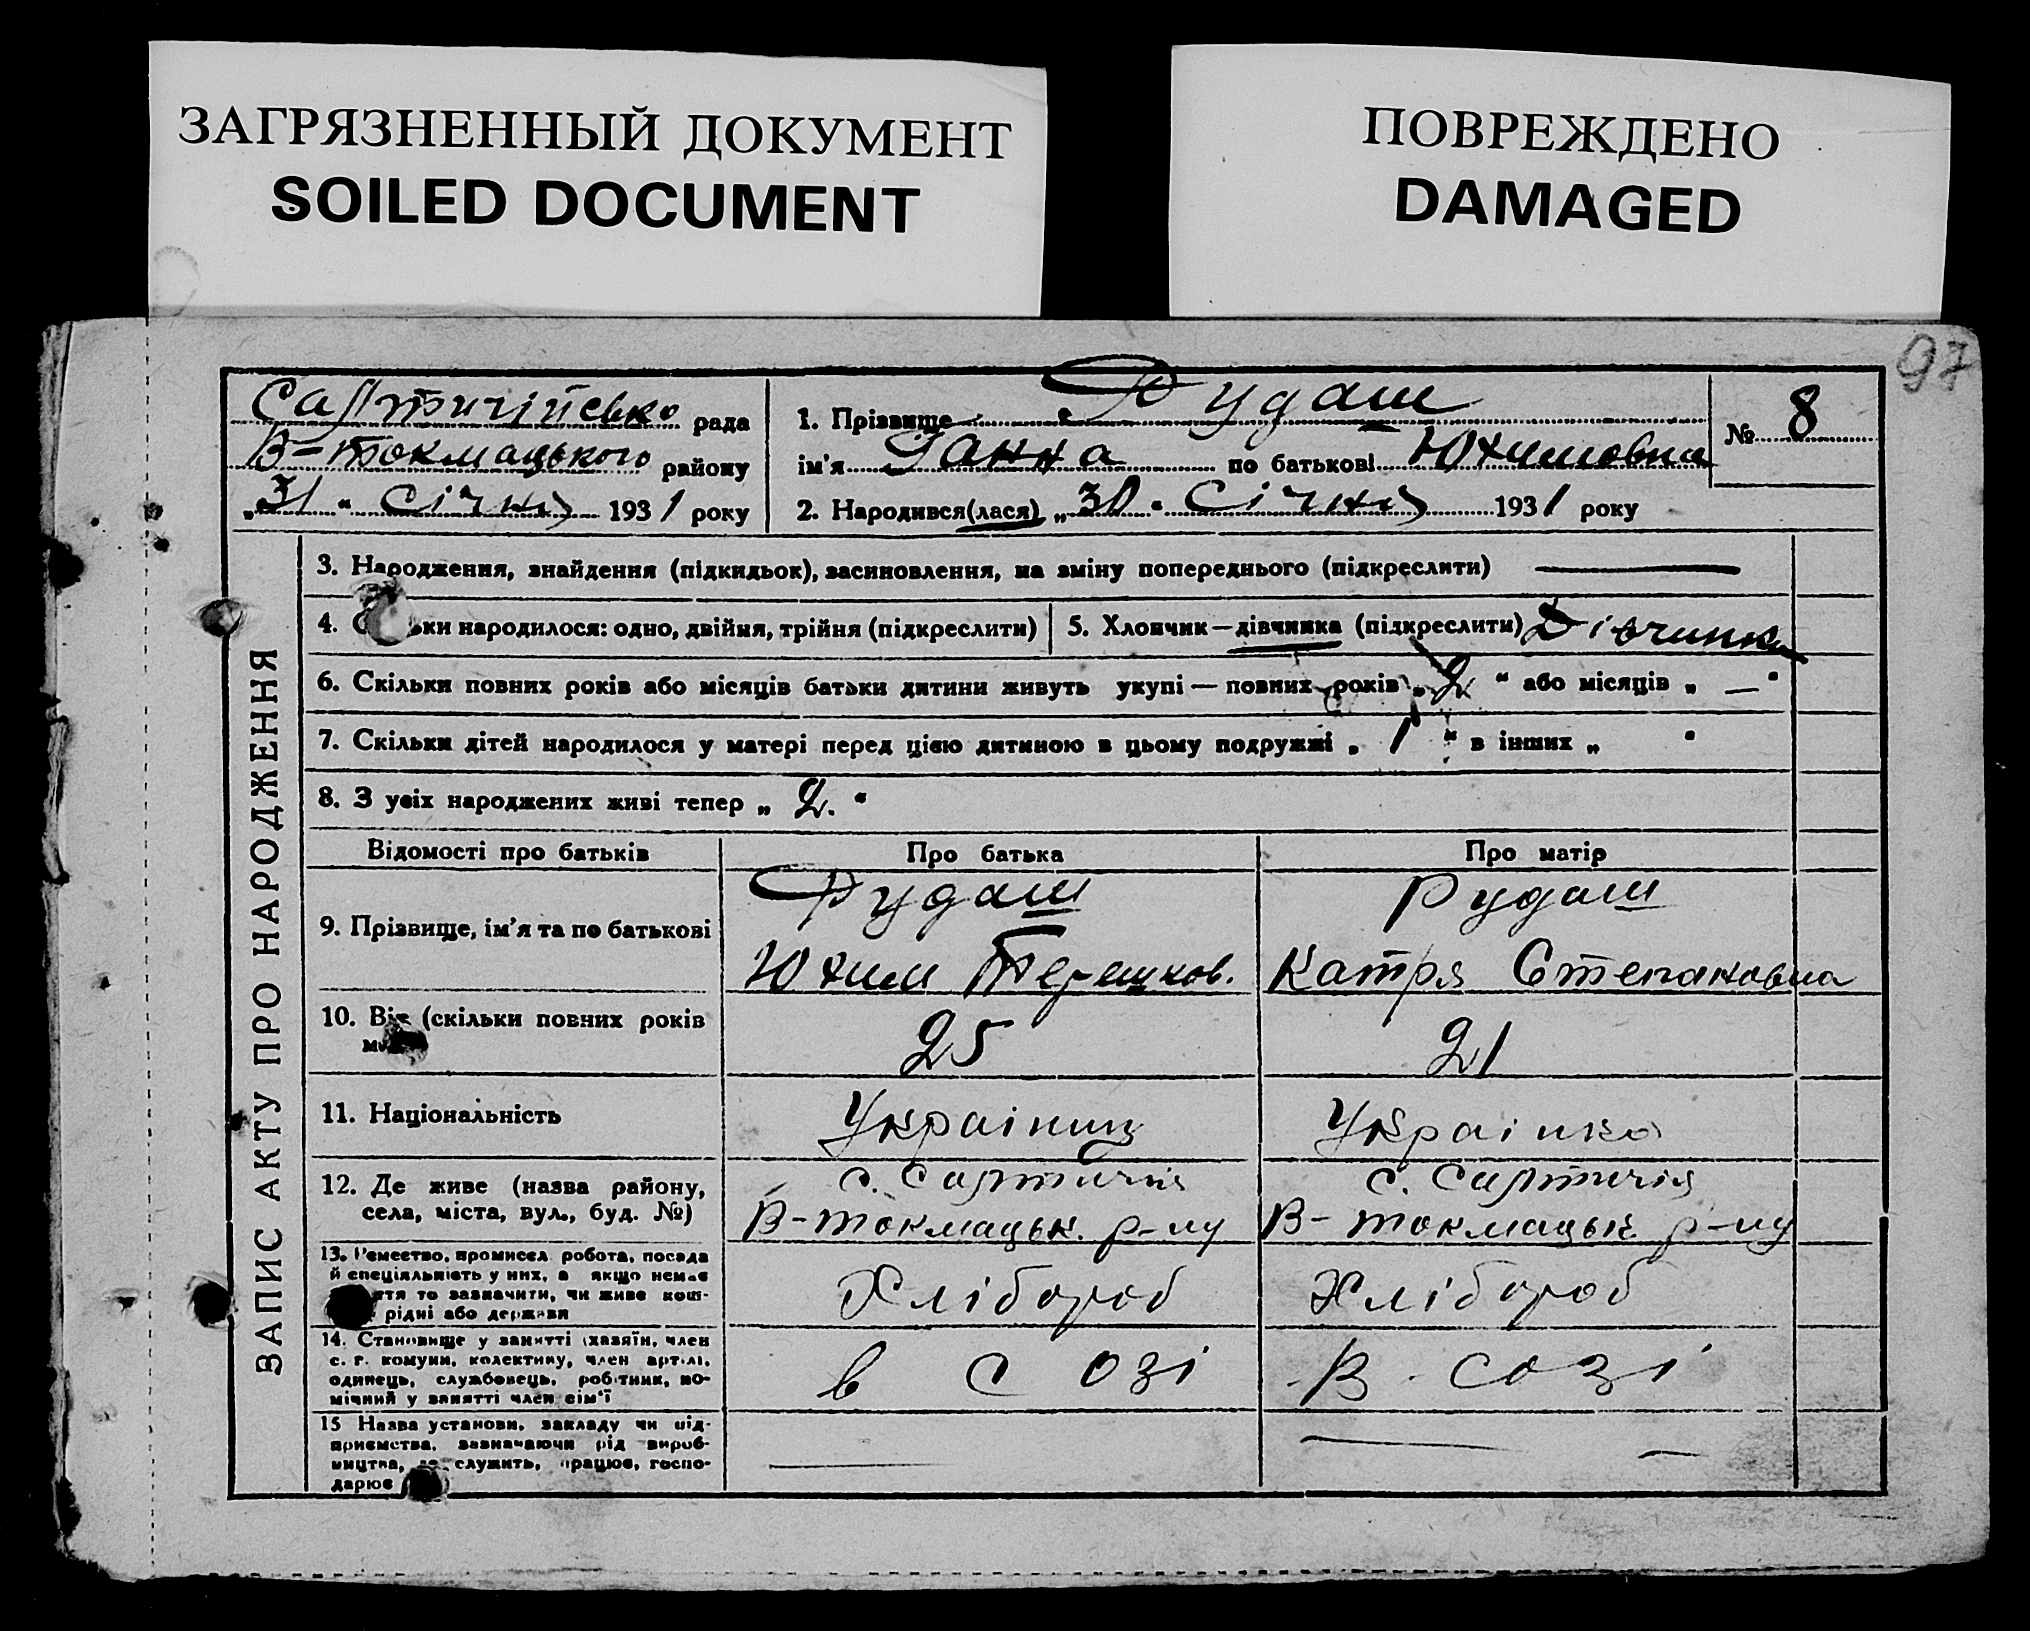 ЗАГРЯЗНЕННЫЙ ДОКУМЕНТ
SOILED DOCUMENT
ПОВРЕЖДЕНО
DAMAGED
97
Салтичійсько рада
В-Токмацького району
„31" Січня 1931 року
1. Прізвище Рудаш
ім'я Ганна по батькові Юхимовна
2. Народився(лася) „30" Січня 1931 року
№ 8
ЗАПИС АКТУ ПРО НАРОДЖЕННЯ
3. Народження, знайдення (підкидьок), засиновлення, на зміну попереднього (підкреслити) —
4. ьки народилося: одно, двійня, трійня (підкреслити)
5. Хлопчик—дівчинка (підкреслити) Дівчинка
6. Скільки повних років або місяців батьки дитини живуть укупі — повних років „2" або місяців „—"
7. Скільки дітей народилося у матері перед цією дитиною в цьому подружжі „1" в інших „ "
8. З усіх народжених живі тепер „2."
Відомості про батьків Про батька Про матір
9. Прізвище, ім'я та по батькові
Рудаш
Юхим Терешков.
Рудаш
Катря Степановна
10. Вік (скільки повних років
25
21
11. Національність
Українец
Українка
12. Де живе (назва району,
села, міста, вул., буд. №)
с. Салтичія
В-Токмацьк. р-ну
с. Салтичія
В-Токмацьк. р-ну
13. Ремество, промисел робота, посада
й спеціяльність у них, а якщо немає
ття то зазначити, чи живе кош-
рідні або держави
Хлібороб
Хлібороб
14. Становище у занятті (хазяїн, член
с. г. комуни, колективу, член артілі,
одинець, службовець, робітник, по-
мічний у занятті член сім'ї
в созі
В созі
15 Назва установи, закладу чи під-
приємства, зазначаючи рід вироб-
ництва, де служить, працює, госпо-
дарює
—
— —